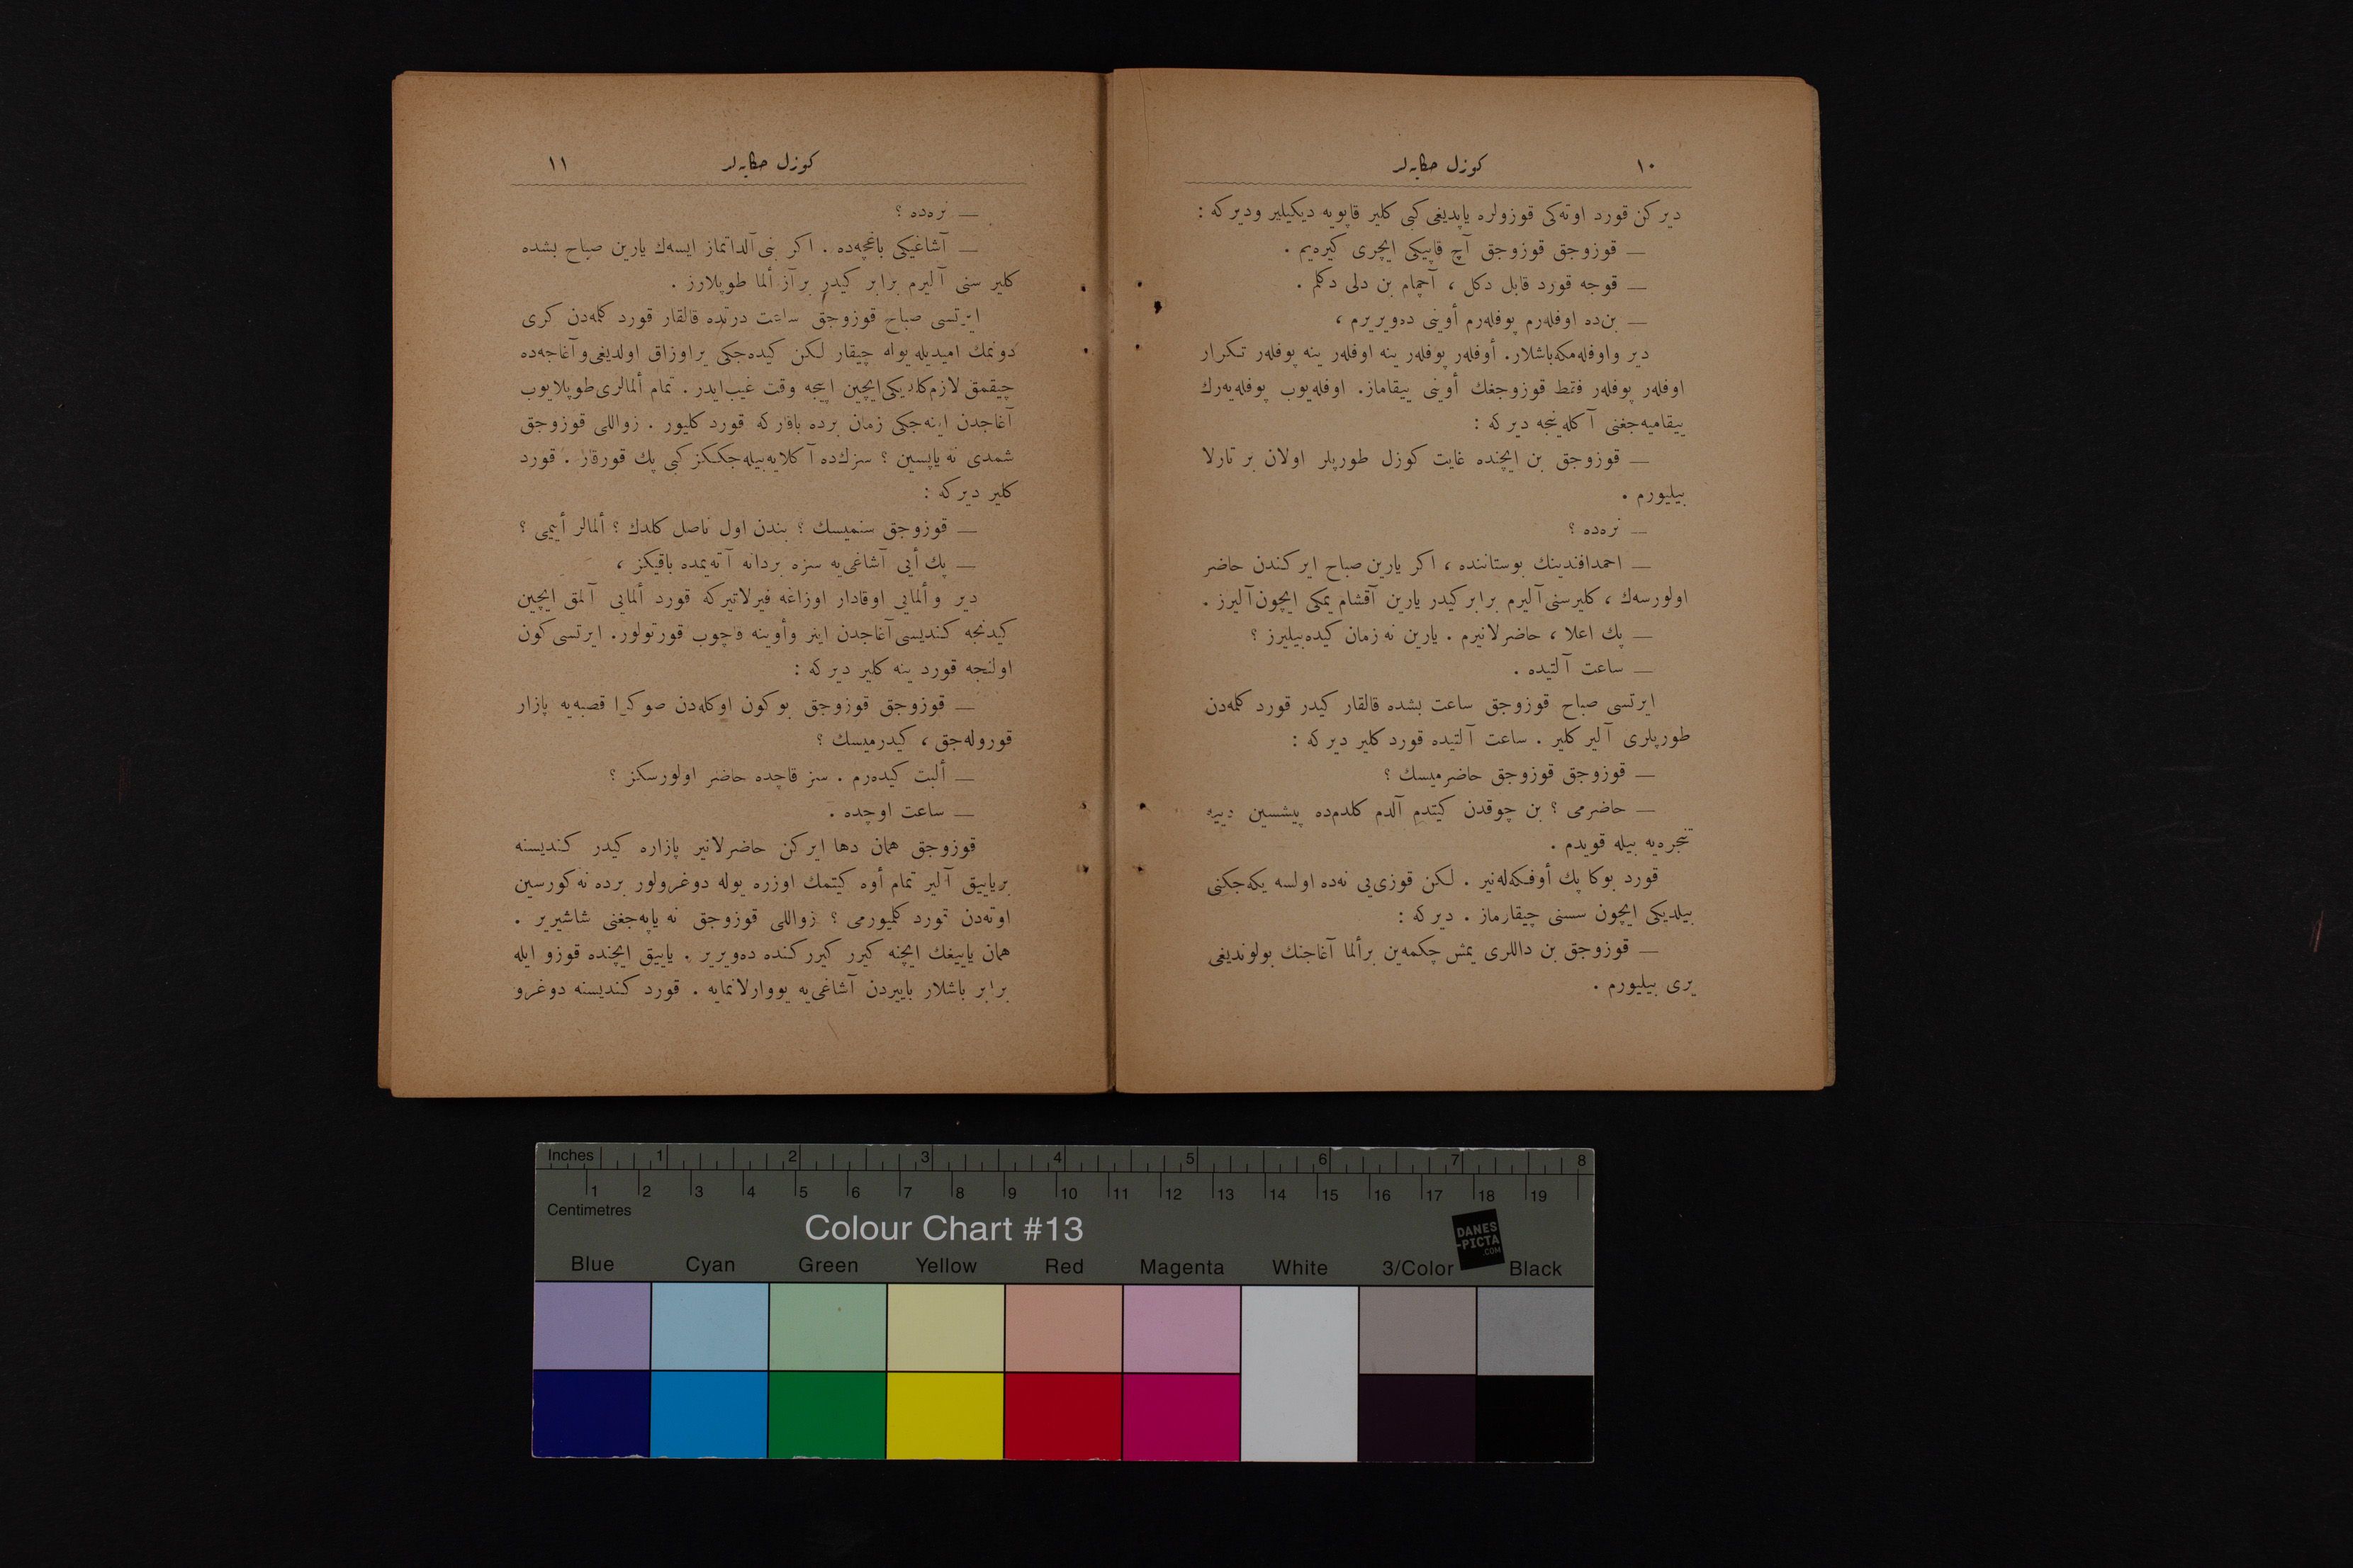 ١٠
كوزل حكايه‌لر
دير كن قورد اوته‌كى قوزولره ياپديغى كبى كلير قاپويه ديكيلير وديركه :
— قوزوجق قوزوجق آچ قاپيكى ايچرى كيره‌يم .
— قوجه قورد قابل دكل ، آچمام بن دلى دكلم .
— بن‌ده اوفله‌رم پوفله‌رم أوينى ده‌ويريرم ،
دير واوفله‌مكه‌باشلار. أوفلەر پوفلەر ينه اوفلەر ينه پوفلەر تكرار
اوفلەر پوفلەر فقط قوزوجغك أوينى ييقاماز. اوفله‌يوب پوفله‌يه‌رك
ييقاميه‌جغنى آكله‌ينجه ديركه :
— قوزوجق بن ايچنده غايت كوزل طورپلر اولان بر تارلا
بيليورم .
— نره‌ده ؟
— احمدافندينك بوستاننده ، اكر يارين صباح اير كندن حاضر
اولورسه‌ك ، كليرسنى آليرم برابر كيدر يارين آقشام يمكى ايچون آليرز .
— پك اعلا ، حاضرلانيرم . يارين نه زمان كيده‌بيليرز ؟
— ساعت آلتيده .
ايرتسى صباح قوزوجق ساعت بشده قالقار كيدر قورد كلمه‌دن
طورپلرى آلير كلير . ساعت آلتيده قورد كلير ديركه :
— قوزوجق قوزوجق حاضرميسك ؟
— حاضرمى ؟ بن چوقدن كيتدم آلدم كلدم‌ده پيشسين دييه
تنجره‌يه بيله قويدم .
قورد بوكا پك أوفكه‌له‌نير . لكن قوزى‌يى نه‌ده اولسه ييه‌جكنى
بيلديكى ايچون سسنى چيقارماز . ديركه :
— قوزوجق بن داللرى يمش چكمه‌ين برألما آغاجنك بولونديغى
يرى بيليورم .
كوزل حكايه‌لر
١١
— نره‌ده ؟
— آشاغيكى باغچه‌ده . اكر بنى آلداتماز ايسه‌ك يارين صباح بشده
كلير سنى آليرم برابر كيدر برآز ألما طوپلارز .
ايرتسى صباح قوزوجق ساعت درتده قالقار قورد كلمه‌دن كرى
دونمك اميديله يوله چيقار لكن كيده‌جكى يراوزاق اولديغى وآغاجه‌ده
چيقمق لازم كلديكى ايچين اييجه وقت غيب‌ايدر . تمام ألمالرى طوپلايوب
آغاجدن اينه‌جكى زمان برده باقاركه قورد كليور . زواللى قوزوجق
شمدى نه ياپسين ؟ سزك‌ده آكلايه‌بيله‌جككز كبى پك قورقار . قورد
كلير ديركه :
— قوزوجق سنميسك ؟ بندن اول ناصل كلدك ؟ ألمالر أييمى ؟
— پك أيى آشاغى‌يه سزه بردانه آته‌يمده باقيكز ،
دير و ألمايى اوقادار اوزاغه فيرلاتيركه قورد ألمايى آلمق ايچين
كيدنجه كنديسى آغاجدن اينر وأوينه قاچوب قورتولور. ايرتسى كون
اولنجه قورد ينه كلير ديركه :
— قوزوجق قوزوجق بوكون اوكله‌دن صوكرا قصبه‌يه پازار
قوروله‌جق ، كيدرميسك ؟
— ألبت كيده‌رم . سز قاچده حاضر اولورسكز ؟
— ساعت اوچده .
قوزوجق همان دها ايركن حاضرلانير پازاره كيدر كنديسنه
برياييق آلير تمام أوه كيتمك اوزره يوله دوغرولور برده نه كورسين
اوته‌دن قورد كلميورمى ؟ زواللى قوزوجق نه ياپه‌جغنى شاشيرير .
همان ياييغك ايچنه كيرر كيرركنده ده‌ويرير . ياييق ايچنده قوزو ايله
برابر باشلار باييردن آشاغى‌يه يووارلانمايه . قورد كنديسنه دوغرو
Inches 1 2 3 4 5 6 7 8
1 2 3 4 5 6 7 8 9 10 11 12 13 14 15 16 17 18 19
Centimetres
Colour Chart #13
DANES
-PICTA
.COM
Blue Cyan Green Yellow Red Magenta White 3/Color Black